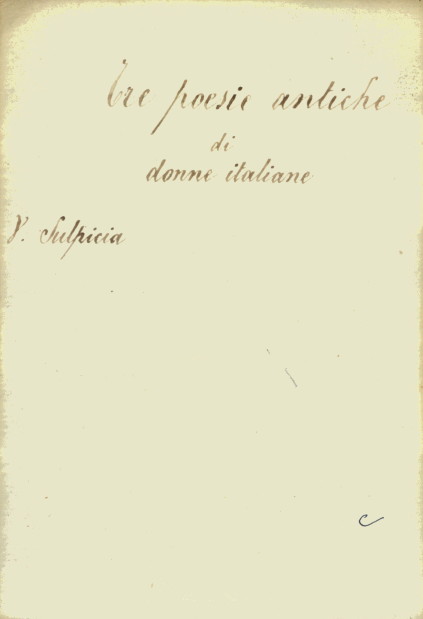 Tre poesie antiche
di
donne italiane
V. Sulpicia